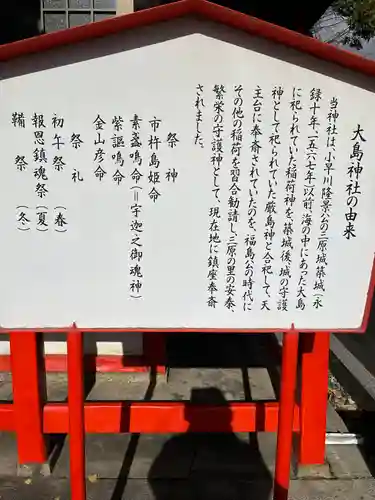 大島神社の由来
当神社は、小早川隆景公の三原城築城(永
録十年、一五六七年)以前、海の中にあった大島
に祀られていた稲荷神を、築城後、城の守護
神として祀られていた厳島神と合祀して、天
主台に奉斎されていたのを、福島公の時代に
その他の稲荷を習合勧請し、三原の里の安泰、
繁栄の守護神として、現在地に鎮座奉斎
されました。
祭神
市杵島姫命
素盞鳴命(=宇迦之御魂神)
紫謳鳴命
金山彦命
祭礼
初午祭(春)
報恩鎮魂祭(夏)
鞴祭(冬)